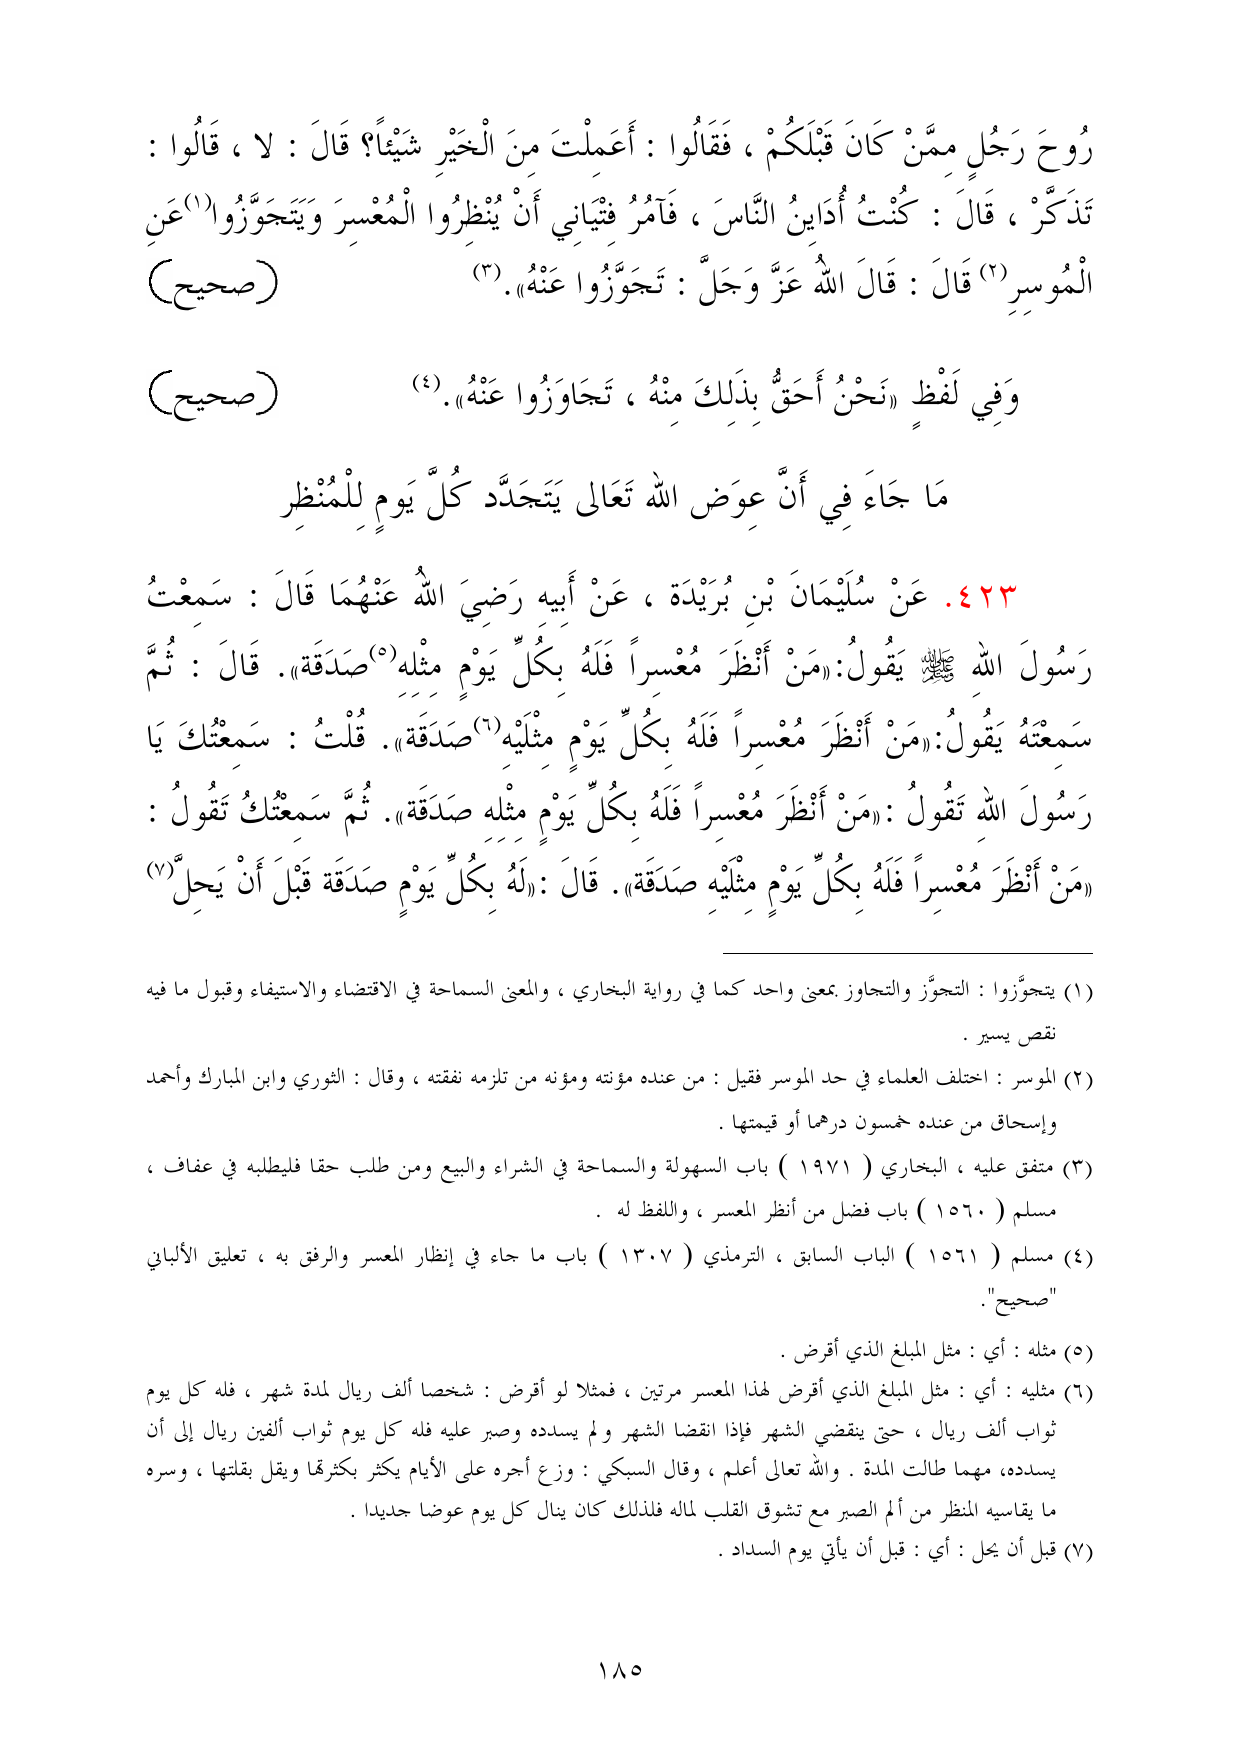 رُوحَ رَجُلٍ مِمَّنْ كَانَ قَبْلَكُمْ ، فَقَالُوا : أَعَمِلْتَ مِنَ الْخَيْرِ شَيْئاً؟ قَالَ : لا ، قَالُوا :
تَذَكَّرْ ، قَالَ : كُنْتُ أُدَايِنُ النَّاسَ ، فَآمُرُ فِتْيَانِي أَنْ يُنْظِرُوا الْمُعْسِرَ وَيَتَجَوَّزُوا(١) عَنِ
الْمُوسِرِ(٢) قَالَ : قَالَ اللهُ عَزَّ وَجَلَّ : تَجَوَّزُوا عَنْهُ».(٣) (صحيح)
وَفِي لَفْظٍ «نَحْنُ أَحَقُّ بِذَلِكَ مِنْهُ ، تَجَاوَزُوا عَنْهُ».(٤) (صحيح)
مَا جَاءَ فِي أَنَّ عِوَض الله تَعَالى يَتَجَدَّد كُلَّ يَومٍ لِلْمُنْظِرِ
٤٢٣. عَنْ سُلَيْمَانَ بْنِ بُرَيْدَة ، عَنْ أَبِيهِ رَضِيَ اللهُ عَنْهُمَا قَالَ : سَمِعْتُ
رَسُولَ اللهِ ﷺ يَقُولُ:«مَنْ أَنْظَرَ مُعْسِراً فَلَهُ بِكُلِّ يَوْمٍ مِثْلِهِ(٥) صَدَقَة». قَالَ : ثُمَّ
سَمِعْتَهُ يَقُولُ:«مَنْ أَنْظَرَ مُعْسِراً فَلَهُ بِكُلِّ يَوْمٍ مِثْلَيْهِ(٦) صَدَقَة». قُلْتُ : سَمِعْتُكَ يَا
رَسُولَ اللهِ تَقُولُ :«مَنْ أَنْظَرَ مُعْسِراً فَلَهُ بِكُلِّ يَوْمٍ مِثْلِهِ صَدَقَة». ثُمَّ سَمِعْتُكُ تَقُولُ :
«مَنْ أَنْظَرَ مُعْسِراً فَلَهُ بِكُلِّ يَوْمٍ مِثْلَيْهِ صَدَقَة». قَالَ :«لَهُ بِكُلِّ يَوْمٍ صَدَقَة قَبْلَ أَنْ يَحِلَّ(٧)
(١) يتجوَّزوا : التجوَّز والتجاوز بمعنى واحد كما في رواية البخاري ، والمعنى السماحة في الاقتضاء والاستيفاء وقبول ما فيه
نقص يسير .
(٢) الموسر : اختلف العلماء في حد الموسر فقيل : من عنده مؤنته ومؤنه من تلزمه نفقته ، وقال : الثوري وابن المبارك وأحمد
وإسحاق من عنده خمسون درهما أو قيمتها .
(٣) متفق عليه ، البخاري ( ١٩٧١ ) باب السهولة والسماحة في الشراء والبيع ومن طلب حقا فليطلبه في عفاف ،
مسلم ( ١٥٦٠ ) باب فضل من أنظر المعسر ، واللفظ له .
(٤) مسلم ( ١٥٦١ ) الباب السابق ، الترمذي ( ١٣٠٧ ) باب ما جاء في إنظار المعسر والرفق به ، تعليق الألباني
"صحيح".
(٥) مثله : أي : مثل المبلغ الذي أقرض .
(٦) مثليه : أي : مثل المبلغ الذي أقرض لهذا المعسر مرتين ، فمثلا لو أقرض : شخصا ألف ريال لمدة شهر ، فله كل يوم
ثواب ألف ريال ، حتى ينقضي الشهر فإذا انقضا الشهر ولم يسدده وصبر عليه فله كل يوم ثواب ألفين ريال إلى أن
يسدده، مهما طالت المدة . والله تعالى أعلم ، وقال السبكي : وزع أجره على الأيام يكثر بكثرتها ويقل بقلتها ، وسره
ما يقاسيه المنظر من ألم الصبر مع تشوق القلب لماله فلذلك كان ينال كل يوم عوضا جديدا .
(٧) قبل أن يحل : أي : قبل أن يأتي يوم السداد .
١٨٥